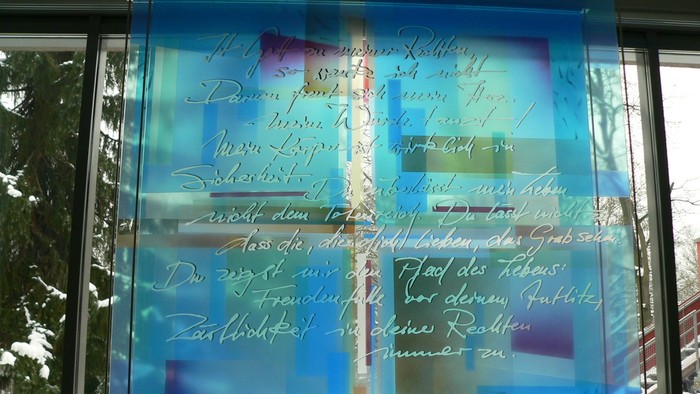 Ist Gott zu meiner Rechten,
so wanke ich nicht
Darum freut sich mein Herz.
meine Würde tanzt!
Mein Körper ist wirklich in
Sicherheit. Du überlässt mein Leben
nicht dem Totenreich. Du lässt nicht zu
dass die, die dich lieben, das Grab sehn.
Du zeigst mir den Pfad des Lebens:
Freudenfülle vor deinem Antlitz,
Zärtlichkeit in deiner Rechten
immer zu.